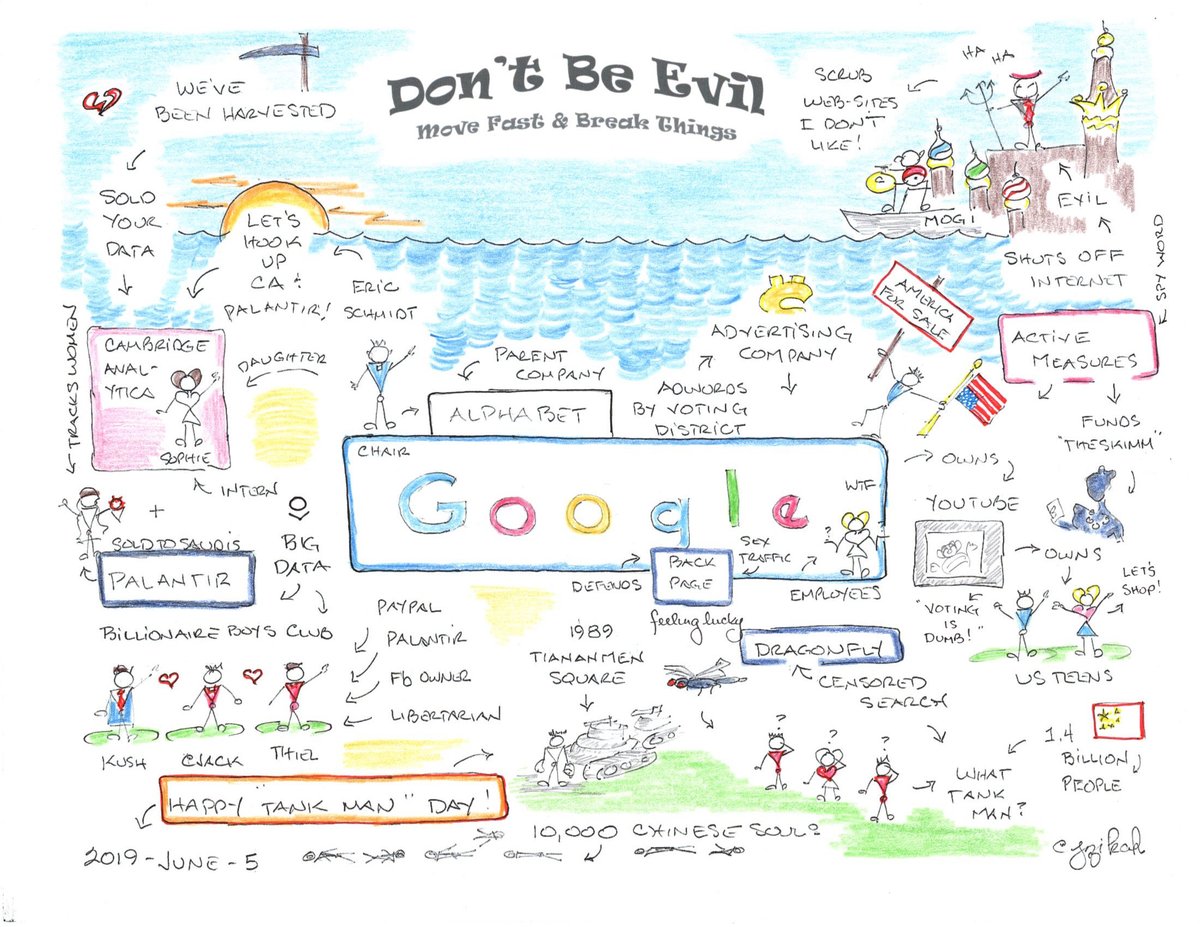 Don't Be Evil
Move Fast & Break Things
WE'VE
BEEN HARVESTED
SOLD
YOUR
DATA
LET'S
HOOK
UP
CA &
PALANTIR!
ERIC
SCHMIDT
SCRUB
WEB-SITES
I DON'T
LIKE!
HA HA
MOGI
EVIL
SHUTS OFF
INTERNET
SPY WORLD
ACTIVE
MEASURES
FUNDS
"THESKIMM"
AMERICA
FOR SALE
ADVERTISING
COMPANY
ADWORDS
BY VOTING
DISTRICT
PARENT
COMPANY
ALPHABET
CHAIR
Google
WTF
SEX
TRAFFIC
BACK
PAGE
DEFENDS
EMPLOYEES
feeling lucky
TRACKS WOMEN
CAMBRIDGE
ANAL-
YTICA
SOPHIE
DAUGHTER
INTERN
+
SOLD TO SAUDIS
PALANTIR
BIG
DATA
BILLIONAIRE BOYS CLUB
KUSH
CJACK
THIEL
PAYPAL
PALANTIR
Fb OWNER
LIBERTARIAN
OWNS
YOUTUBE
OWNS
"VOTING
IS
DUMB!"
LET'S
SHOP!
US TEENS
1989
TIANANMEN
SQUARE
DRAGONFLY
CENSORED
SEARCH
? ? ?
WHAT
TANK
MAN?
1.4
BILLION
PEOPLE
HAPPY "TANK MAN" DAY!
10,000 CHINESE SOULS
2019-JUNE-5